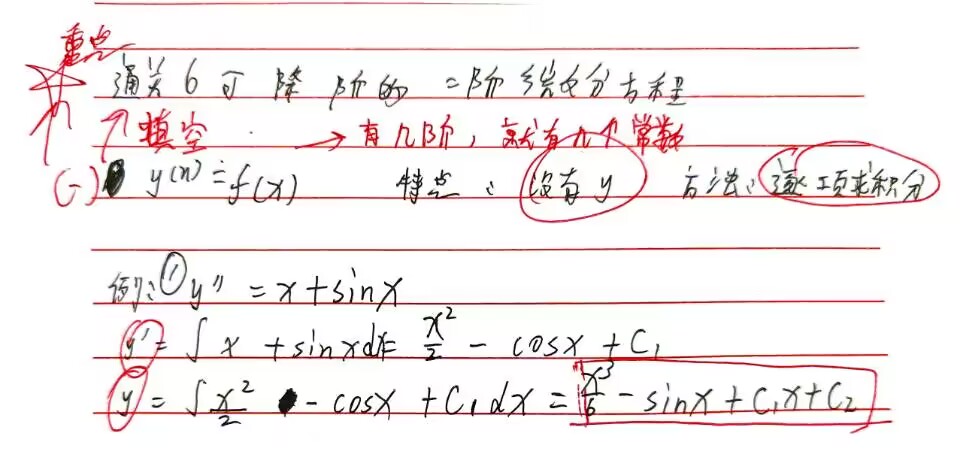 重点
通关6 可降阶的二阶微分方程
↑填空 → 有几阶,就有几个常数
(一) y(n)=f(x) 特点: 没有y 方法: 逐项求积分
例: ① y''=x+sinx
y'=∫x+sinxdx=x²/2-cosx+C₁
y=∫x²/2-cosx+C₁dx=x³/6-sinx+C₁x+C₂